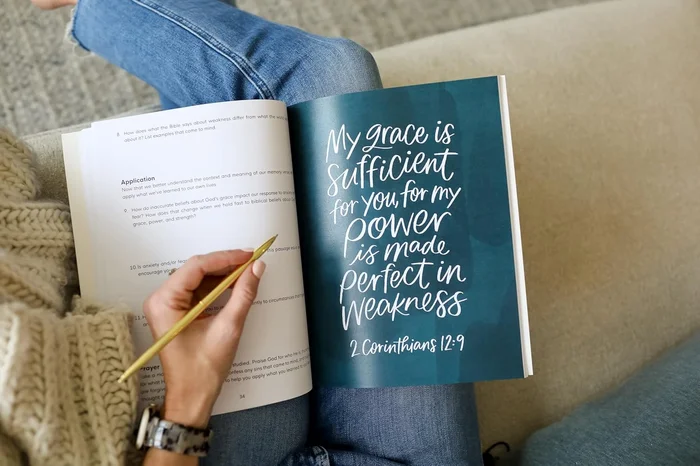 8. How does what the Bible says about weakness differ from what the
about it? List examples that come to mind.
Application
Now that we better understand the context and meaning of our memory
apply what we've learned to our own lives.
9. How do inaccurate beliefs about God's grace impact our response to
fear? How does that change when we hold fast to biblical beliefs about
grace, power, and strength?
10. Is anxiety and/or
the passage
encourage
11
to circumstances
Prayer
studied. Praise God for
any sins that came to mind, and
help you apply what you learned to
34
My grace is
Sufficient
for you, for my
power
is made
perfect in
Weakness
2 Corinthians 12:9